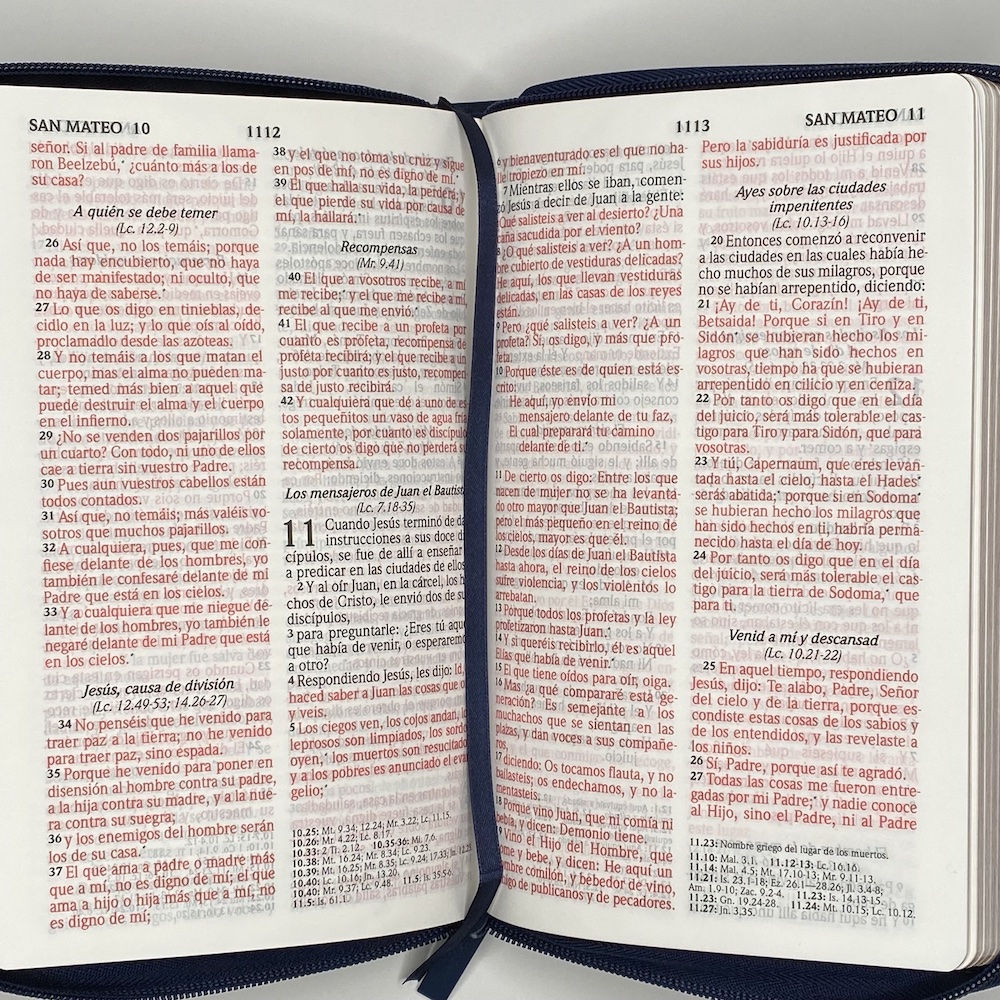 SAN MATEO 10
1112
señor. Si al padre de familia llama-
ron Beelzebú,* ¿cuánto más a los de
su casa?
A quién se debe temer
(Lc. 12.2-9)
26 Así que, no los temáis; porque
nada hay encubierto, que no haya
de ser manifestado; ni oculto, que
no haya de saberse.*
27 Lo que os digo en tinieblas, de-
cidlo en la luz; y lo que oís al oído,
proclamadlo desde las azoteas.
28 Y no temáis a los que matan el
cuerpo, mas el alma no pueden ma-
tar; temed más bien a aquel que
puede destruir el alma y el cuerpo
en el infierno.
29 ¿No se venden dos pajarillos por
un cuarto? Con todo, ni uno de ellos
cae a tierra sin vuestro Padre.
30 Pues aun vuestros cabellos están
todos contados.
31 Así que, no temáis; más valéis vo-
sotros que muchos pajarillos.
32 A cualquiera, pues, que me con-
fiese delante de los hombres, yo
también le confesaré delante de mi
Padre que está en los cielos.
33 Y a cualquiera que me niegue de-
lante de los hombres, yo también le
negaré delante de mi Padre que está
en los cielos.*
Jesús, causa de división
(Lc. 12.49-53; 14.26-27)
34 No penséis que he venido para
traer paz a la tierra; no he venido
para traer paz, sino espada.
35 Porque he venido para poner en
disensión al hombre contra su padre,
a la hija contra su madre, y a la nue-
ra contra su suegra;
36 y los enemigos del hombre serán
los de su casa.*
37 El que ama a padre o madre más
que a mí, no es digno de mí; el que
ama a hijo o hija más que a mí, no
es digno de mí;
38 y el que no toma su cruz y sigue
en pos de mí, no es digno de mí.*
39 El que halla su vida, la perderá; y
el que pierde su vida por causa de
mí, la hallará.*
Recompensas
(Mr. 9.41)
40 El que a vosotros recibe, a mí
me recibe;* y el que me recibe a mí,
recibe al que me envió.*
41 El que recibe a un profeta por
cuanto es profeta, recompensa de
profeta recibirá; y el que recibe a un
justo por cuanto es justo, recompen-
sa de justo recibirá.
42 Y cualquiera que dé a uno de es-
tos pequeñitos un vaso de agua fría
solamente, por cuanto es discípulo,
de cierto os digo que no perderá su
recompensa.
Los mensajeros de Juan el Bautista
(Lc. 7.18-35)
11 Cuando Jesús terminó de da
instrucciones a sus doce di
cípulos, se fue de allí a enseñar
a predicar en las ciudades de ellos
2 Y al oír Juan, en la cárcel, los h
chos de Cristo, le envió dos de su
discípulos,
3 para preguntarle: ¿Eres tú aqu
que había de venir, o esperaremo
a otro?
4 Respondiendo Jesús, les dijo: Id,
haced saber a Juan las cosas que o
y veis.
5 Los ciegos ven, los cojos andan, lo
leprosos son limpiados, los sordo
oyen,* los muertos son resucitado
y a los pobres es anunciado el evan
gelio;*
10.25: Mt. 9.34; 12.24; Mr. 3.22; Lc. 11.15.
10.26: Mr. 4.22; Lc. 8.17.
10.33: 2 Ti. 2.12. 10.35-36: Mi. 7.6.
10.38: Mt. 16.24; Mr. 8.34; Lc. 9.23.
10.39: Mt. 16.25; Mr. 8.35; Lc. 9.24; 17.33; Jn. 12.25.
10.40: Lc. 10.16; Jn. 13.20.
10.40: Mr. 9.37; Lc. 9.48. 11.5: Is. 35.5-6.
11.5: Is. 61.1.
1113
SAN MATEO 11
6 y bienaventurado es el que no ha-
lle tropiezo en mí.
7 Mientras ellos se iban, comen-
zó Jesús a decir de Juan a la gente:
¿Qué salisteis a ver al desierto? ¿Una
caña sacudida por el viento?
8 ¿O qué salisteis a ver? ¿A un hom-
bre cubierto de vestiduras delicadas?
He aquí, los que llevan vestiduras
delicadas, en las casas de los reyes
están.
9 Pero ¿qué salisteis a ver? ¿A un
profeta? Sí, os digo, y más que pro-
feta.
10 Porque éste es de quien está es-
crito:
He aquí, yo envío mi
mensajero delante de tu faz,
El cual preparará tu camino
delante de ti.*
11 De cierto os digo: Entre los que
nacen de mujer no se ha levanta-
do otro mayor que Juan el Bautista;
pero el más pequeño en el reino de
los cielos, mayor es que él.
12 Desde los días de Juan el Bautista
hasta ahora, el reino de los cielos
sufre violencia, y los violentos lo
arrebatan.
13 Porque todos los profetas y la ley
profetizaron hasta Juan.*
14 Y si queréis recibirlo, él es aquel
Elías que había de venir.*
15 El que tiene oídos para oír, oiga.
16 Mas ¿a qué compararé esta ge-
neración? Es semejante a los
muchachos que se sientan en las
plazas, y dan voces a sus compañe-
ros,
17 diciendo: Os tocamos flauta, y no
bailasteis; os endechamos, y no la-
mentasteis.
18 Porque vino Juan, que ni comía ni
bebía, y dicen: Demonio tiene.
19 Vino el Hijo del Hombre, que
come y bebe, y dicen: He aquí un
hombre comilón, y bebedor de vino,
amigo de publicanos y de pecadores.
Pero la sabiduría es justificada por
sus hijos.
Ayes sobre las ciudades
impenitentes
(Lc. 10.13-16)
20 Entonces comenzó a reconvenir
a las ciudades en las cuales había he-
cho muchos de sus milagros, porque
no se habían arrepentido, diciendo:
21 ¡Ay de ti, Corazín! ¡Ay de ti,
Betsaida! Porque si en Tiro y en
Sidón* se hubieran hecho los mi-
lagros que han sido hechos en
vosotras, tiempo ha que se hubieran
arrepentido en cilicio y en ceniza.
22 Por tanto os digo que en el día
del juicio, será más tolerable el cas-
tigo para Tiro y para Sidón, que para
vosotras.
23 Y tú, Capernaum, que eres levan-
tada hasta el cielo, hasta el Hades*
serás abatida;* porque si en Sodoma*
se hubieran hecho los milagros que
han sido hechos en ti, habría perma-
necido hasta el día de hoy.
24 Por tanto os digo que en el día
del juicio, será más tolerable el cas-
tigo para la tierra de Sodoma,* que
para ti.
Venid a mí y descansad
(Lc. 10.21-22)
25 En aquel tiempo, respondiendo
Jesús, dijo: Te alabo, Padre, Señor
del cielo y de la tierra, porque es-
condiste estas cosas de los sabios y
de los entendidos, y las revelaste a
los niños.
26 Sí, Padre, porque así te agradó.
27 Todas las cosas me fueron entre-
gadas por mi Padre;* y nadie conoce
al Hijo, sino el Padre, ni al Padre
11.23: Nombre griego del lugar de los muertos.
11.10: Mal. 3.1. 11.12-13: Lc. 16.16.
11.14: Mal. 4.5; Mt. 17.10-13; Mr. 9.11-13.
11.21: Is. 23.1-18; Ez. 26.1—28.26; Jl. 3.4-8;
Am. 1.9-10; Zac. 9.2-4. 11.23: Is. 14.13-15.
11.23: Gn. 19.24-28. 11.24: Mt. 10.15; Lc. 10.12.
11.27: Jn. 3.35.